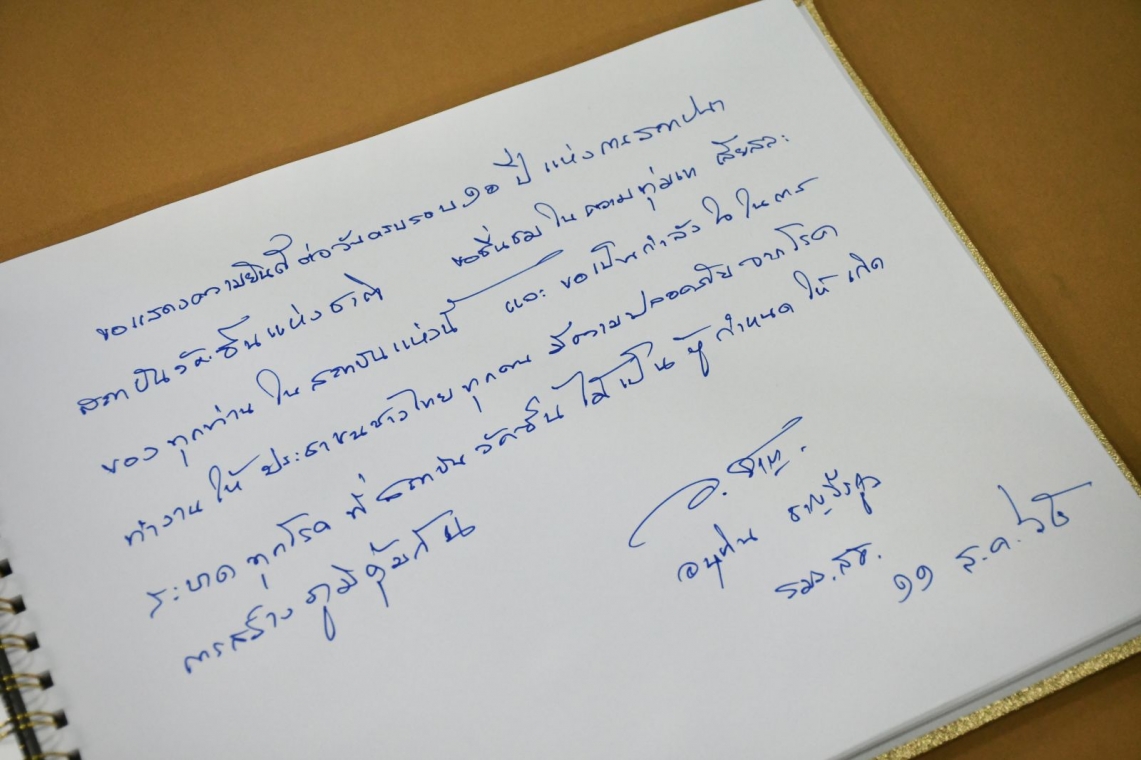 ขอแสดงความยินดี ต่อวันครบรอบ ๑๐ ปี แห่งการสถาปนา
สถาบันวัคซีนแห่งชาติ ขอชื่นชม ในความทุ่มเท เสียสละ
ของ ทุกท่าน ใน สถาบันแห่งนี้ และ ขอเป็นกำลังใจ ในการ
ทำงาน ให้ ประชาชนชาวไทย ทุกคน มีความปลอดภัย จากโรค
ระบาด ทุกโรค ที่ สถาบัน วัคซีน ได้ เป็น ผู้ กำหนด ให้ เกิด
การสร้าง ภูมิคุ้มกัน
อ. ชาญ.
อนุทิน ชาญวีรกูล
รมว. สธ.
๑๑ ส.ค. ๖๕